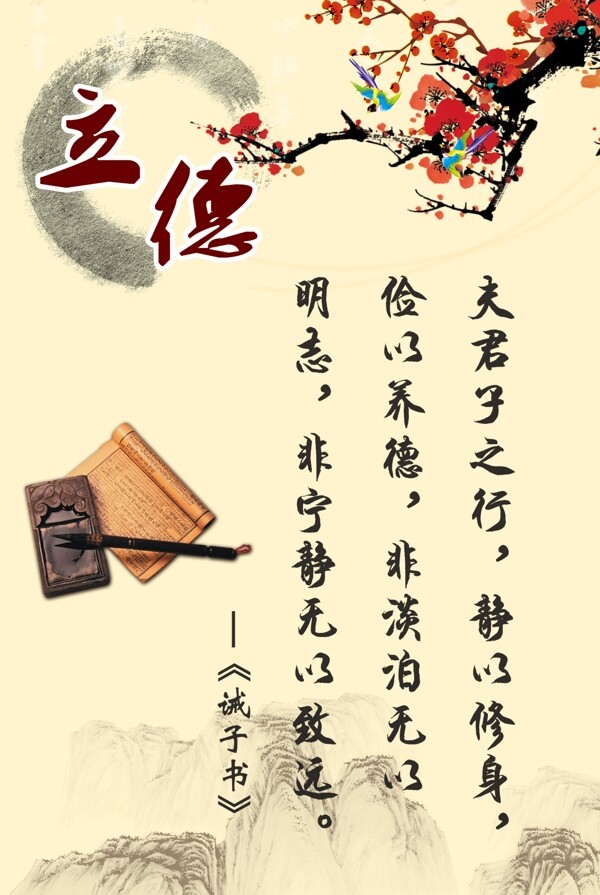 立德
夫君子之行，静以修身，
俭以养德，非淡泊无以
明志，非宁静无以致远。
—《诫子书》